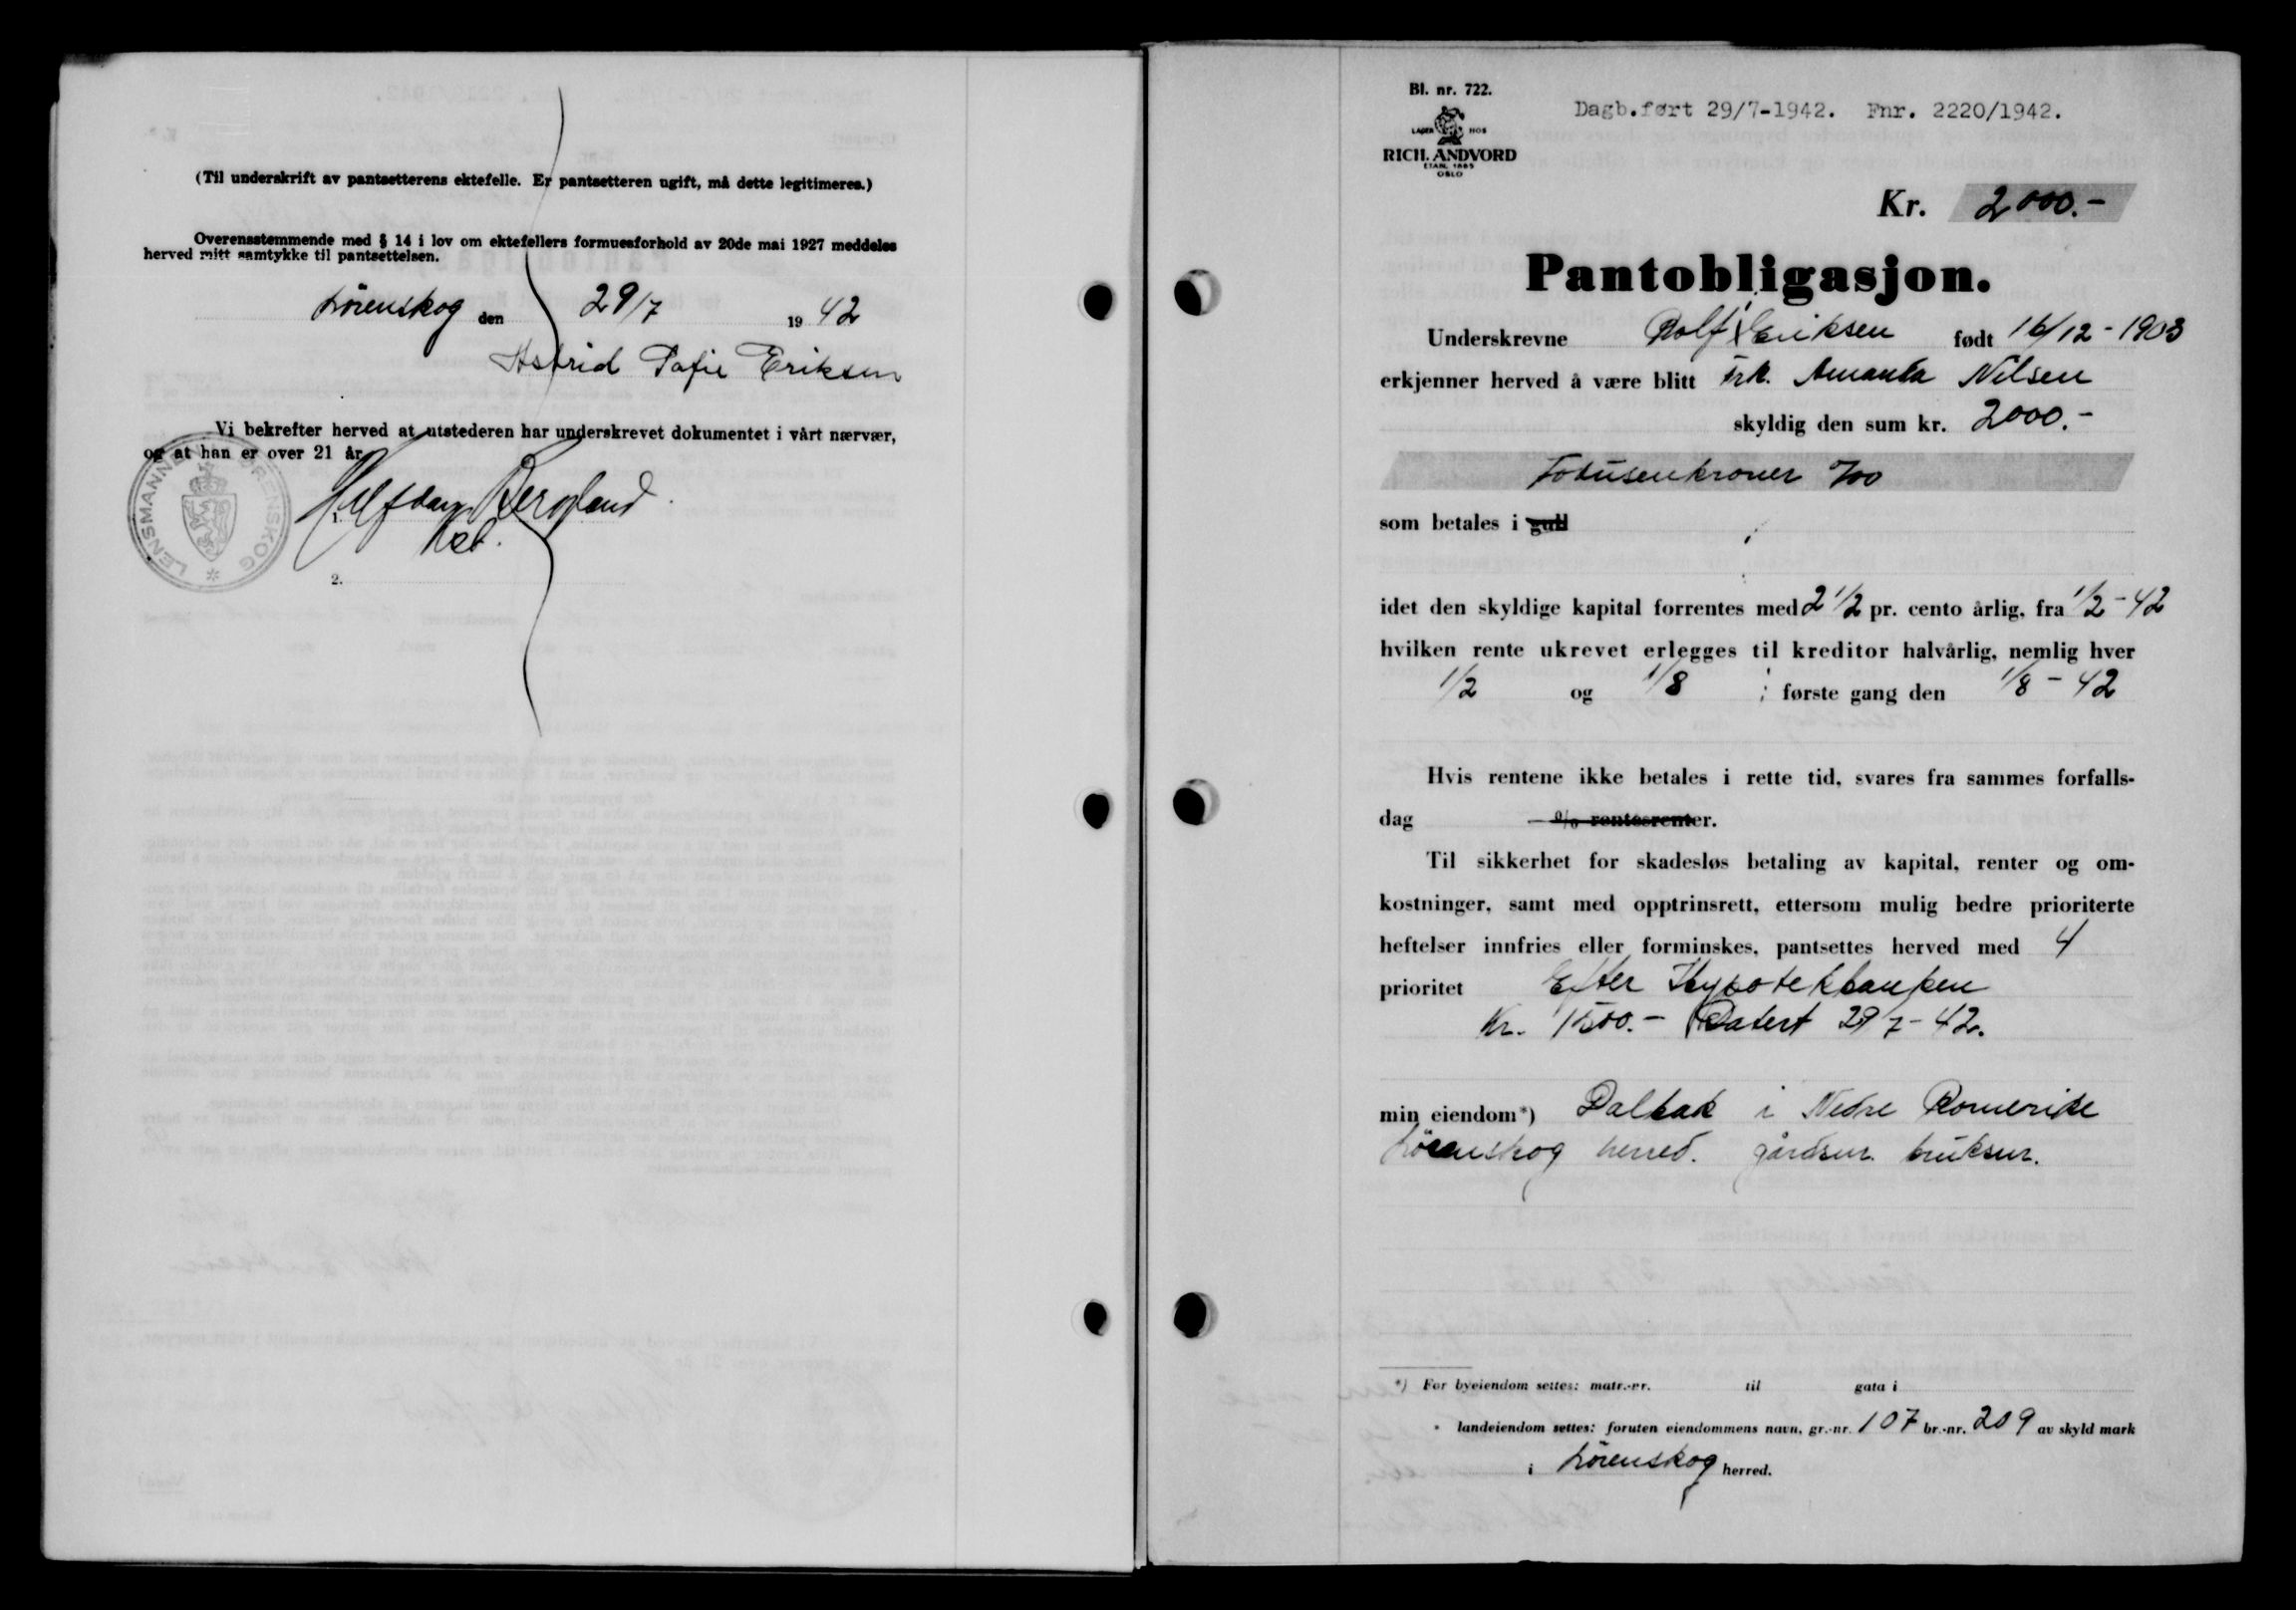 (Til underskrift av pantsetterens ektefelle. Er pantsetteren ugift, må dette legitimeres.)
Overensstemmende med § 14 i lov om ektefellers formuesforhold av 20de mai 1927 meddeles
herved mitt samtykke til pantsettelsen.
Lörenskog den 29/7 1942
Astrid Sofie Eriksen
Vi bekrefter herved at utstederen har underskrevet dokumentet i vårt nærvær,
og at han er over 21 år.
LENSMANNEN LØRENSKOG
1. Halfdan Bergland
2.
Bl. nr. 722.
LAGER HOS
RICH. ANDVORD
ETABL. 1865
OSLO
Dagb.ført 29/7-1942. Fnr. 2220/1942.
Kr. 2000.-
Pantobligasjon.
Underskrevne Rolf Eriksen født 16/12-1903
erkjenner herved å være blitt frk. Amanta Nilsen
skyldig den sum kr. 2000.-
Totusenkroner %00
som betales i gull
idet den skyldige kapital forrentes med 2 1/2 pr. cento årlig, fra 1/2-42
hvilken rente ukrevet erlegges til kreditor halvårlig, nemlig hver
1/2 og 1/8 ; første gang den 1/8-42
Hvis rentene ikke betales i rette tid, svares fra sammes forfalls-
dag % rentesrenter.
Til sikkerhet for skadesløs betaling av kapital, renter og om-
kostninger, samt med opptrinsrett, ettersom mulig bedre prioriterte
heftelser innfries eller forminskes, pantsettes herved med 4
prioritet Efter Hypotekbanken
Kr. 1500.- Datert 29/7-42.
min eiendom*) Dalbak i Nedre Romerike
Lörenskog herred. gårdsnr. bruksnr.
*) For byeiendom settes: matr.-nr. til gata i
" landeiendom settes: foruten eiendommens navn, gr.-nr. 107 br.-nr. 209 av skyld mark
i Lörenskog herred.